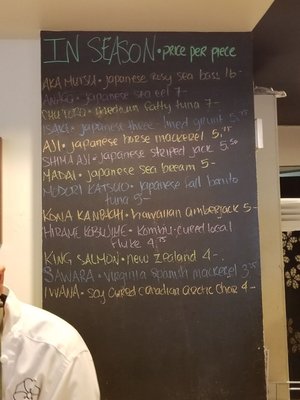 IN SEASON • price per piece
AKA MUTSU • Japanese Rosy sea bass 16-
ANAGO • Japanese sea eel 7-
CHU TORO • medium fatty tuna 7-
ISAKI • Japanese three-lined grunt 5.75
AJI • Japanese horse mackerel 5.75
SHIMA AJI • Japanese striped jack 5.50
MADAI • Japanese sea bream 5-
MODORI KATSUO • Japanese fall bonito
tuna 5-
KONA KANPACHI • hawaiian amberjack 5-
HIRAME KOBUJIME • kombu-cured local
fluke 4.75
KING SALMON • new zealand 4-
SAWARA • virginia spanish mackerel 3.75
IWANA • soy cured canadian arctic char 4-